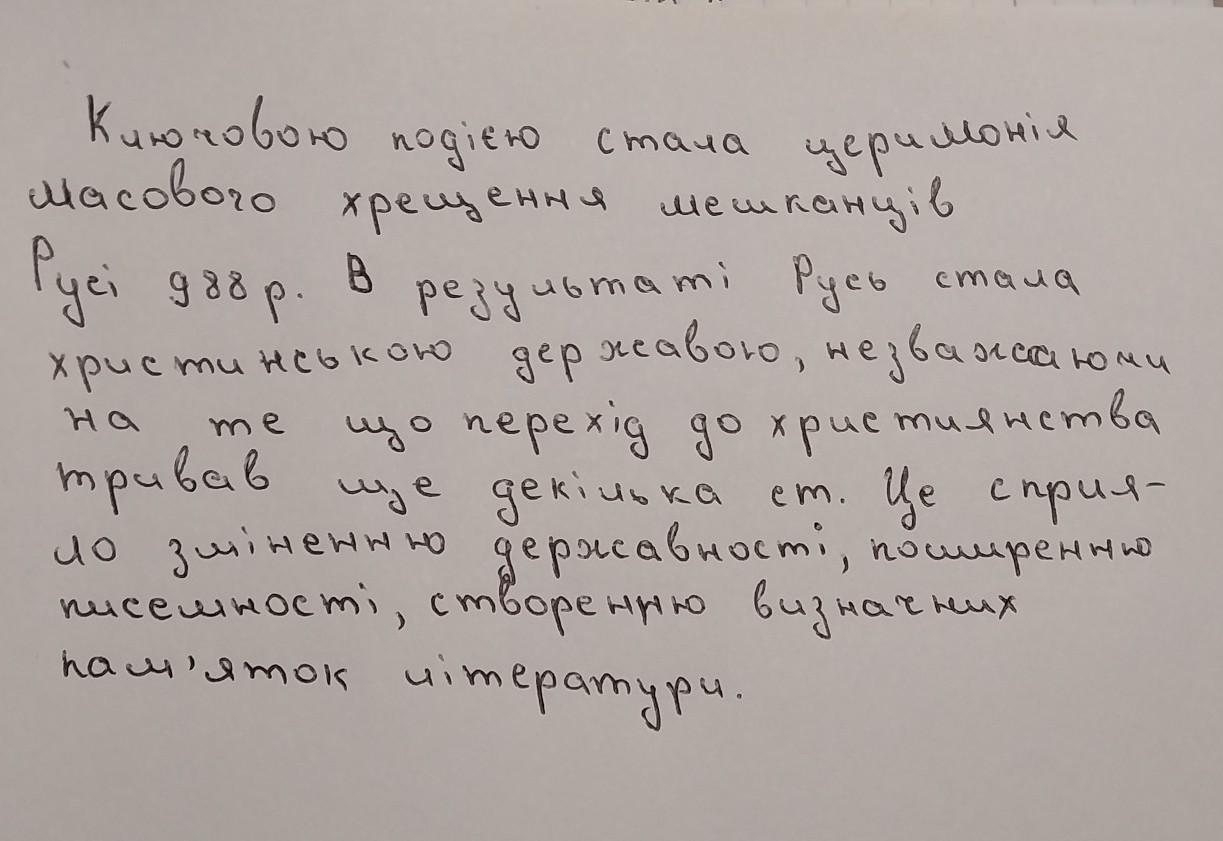 Ключовою подією стала церимонія
масового хрещення мешканців
Русі 988 р. В результаті Русь стала
христинською державою, незважаючи
на те що перехід до християнства
тривав ще декілька ст. Це сприя-
ло зміненню державності, поширенню
писемності, створенню визначних
пам'яток літератури.